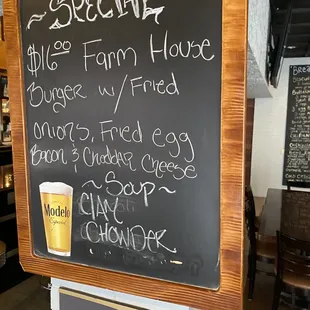 ~ SPECIAL ~
$16.00 Farm House
Burger w/ Fried
onions, Fried egg
Bacon & Cheddar Cheese
~ Soup ~
Clam
CHOWDER
Modelo
Especial